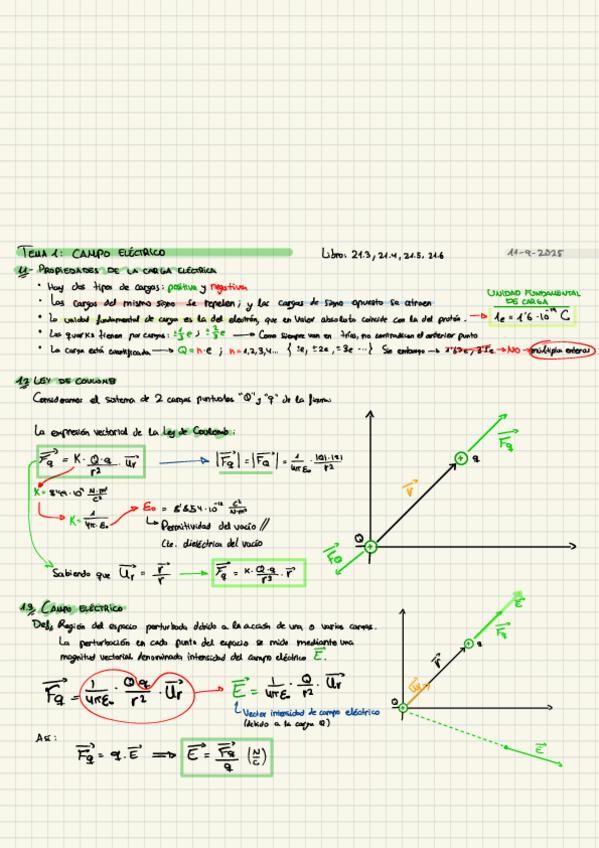 TEMA 1: CAMPO ELÉCTRICO
Libro: 21.3, 21.4, 21.5, 21.6
11-9-2025
1.1- PROPIEDADES DE LA CARGA ELÉCTRICA
• Hay dos tipos de cargas: positiva y negativa
• Las cargas del mismo signo se repelen; y las cargas de signo opuesto se atraen
• La unidad fundamental de carga es la del electrón, que en valor absoluto coincide con la del protón. →
UNIDAD FUNDAMENTAL
DE CARGA
1e = 1'6·10⁻¹⁹ C
• Los quarks tienen por cargas: ±1/3 e ; ±2/3 e → Como siempre van en tríos, no contradicen el anterior punto
• La carga está cuantificada → Q = n·e ; n = 1,2,3,4... { ±e, ±2e, ±3e ...} Sin embargo → → NO → múltiplos enteros
1.2 LEY DE COULOMB
Consideramos el sistema de 2 cargas puntuales "Q" y "q" de la forma:
La expresión vectorial de la Ley de Coulomb:
F⃗q = K · Q·q/r² · u⃗r → |F⃗q| = |F⃗Q| = 1/4πε₀ · |Q|·|q|/r²
K = 8'99·10⁹ N·m²/C²
K = 1/4π·ε₀ → ε₀ = 8'854·10⁻¹² C²/N·m²
↳ Permitividad del vacío //
Cte. dieléctrica del vacío
Sabiendo que u⃗r = r⃗/r → F⃗q = K·Q·q/r³ · r⃗
F⃗q
q
r⃗
Q
F⃗Q
1.3 CAMPO ELÉCTRICO
Def: Región del espacio perturbada debido a la acción de una o varias cargas.
La perturbación en cada punto del espacio se mide mediante una
magnitud vectorial denominada intensidad del campo eléctrico E⃗.
F⃗q = 1/4πε₀ · Qq/r² · u⃗r → E⃗ = 1/4πε₀ · Q/r² · u⃗r
Vector intensidad de campo eléctrico
(debido a la carga Q)
Así:
F⃗q = q·E⃗ ⟹ E⃗ = F⃗q/q (N/C)
E⃗
F⃗q
q
r⃗
u⃗r
Q
E⃗